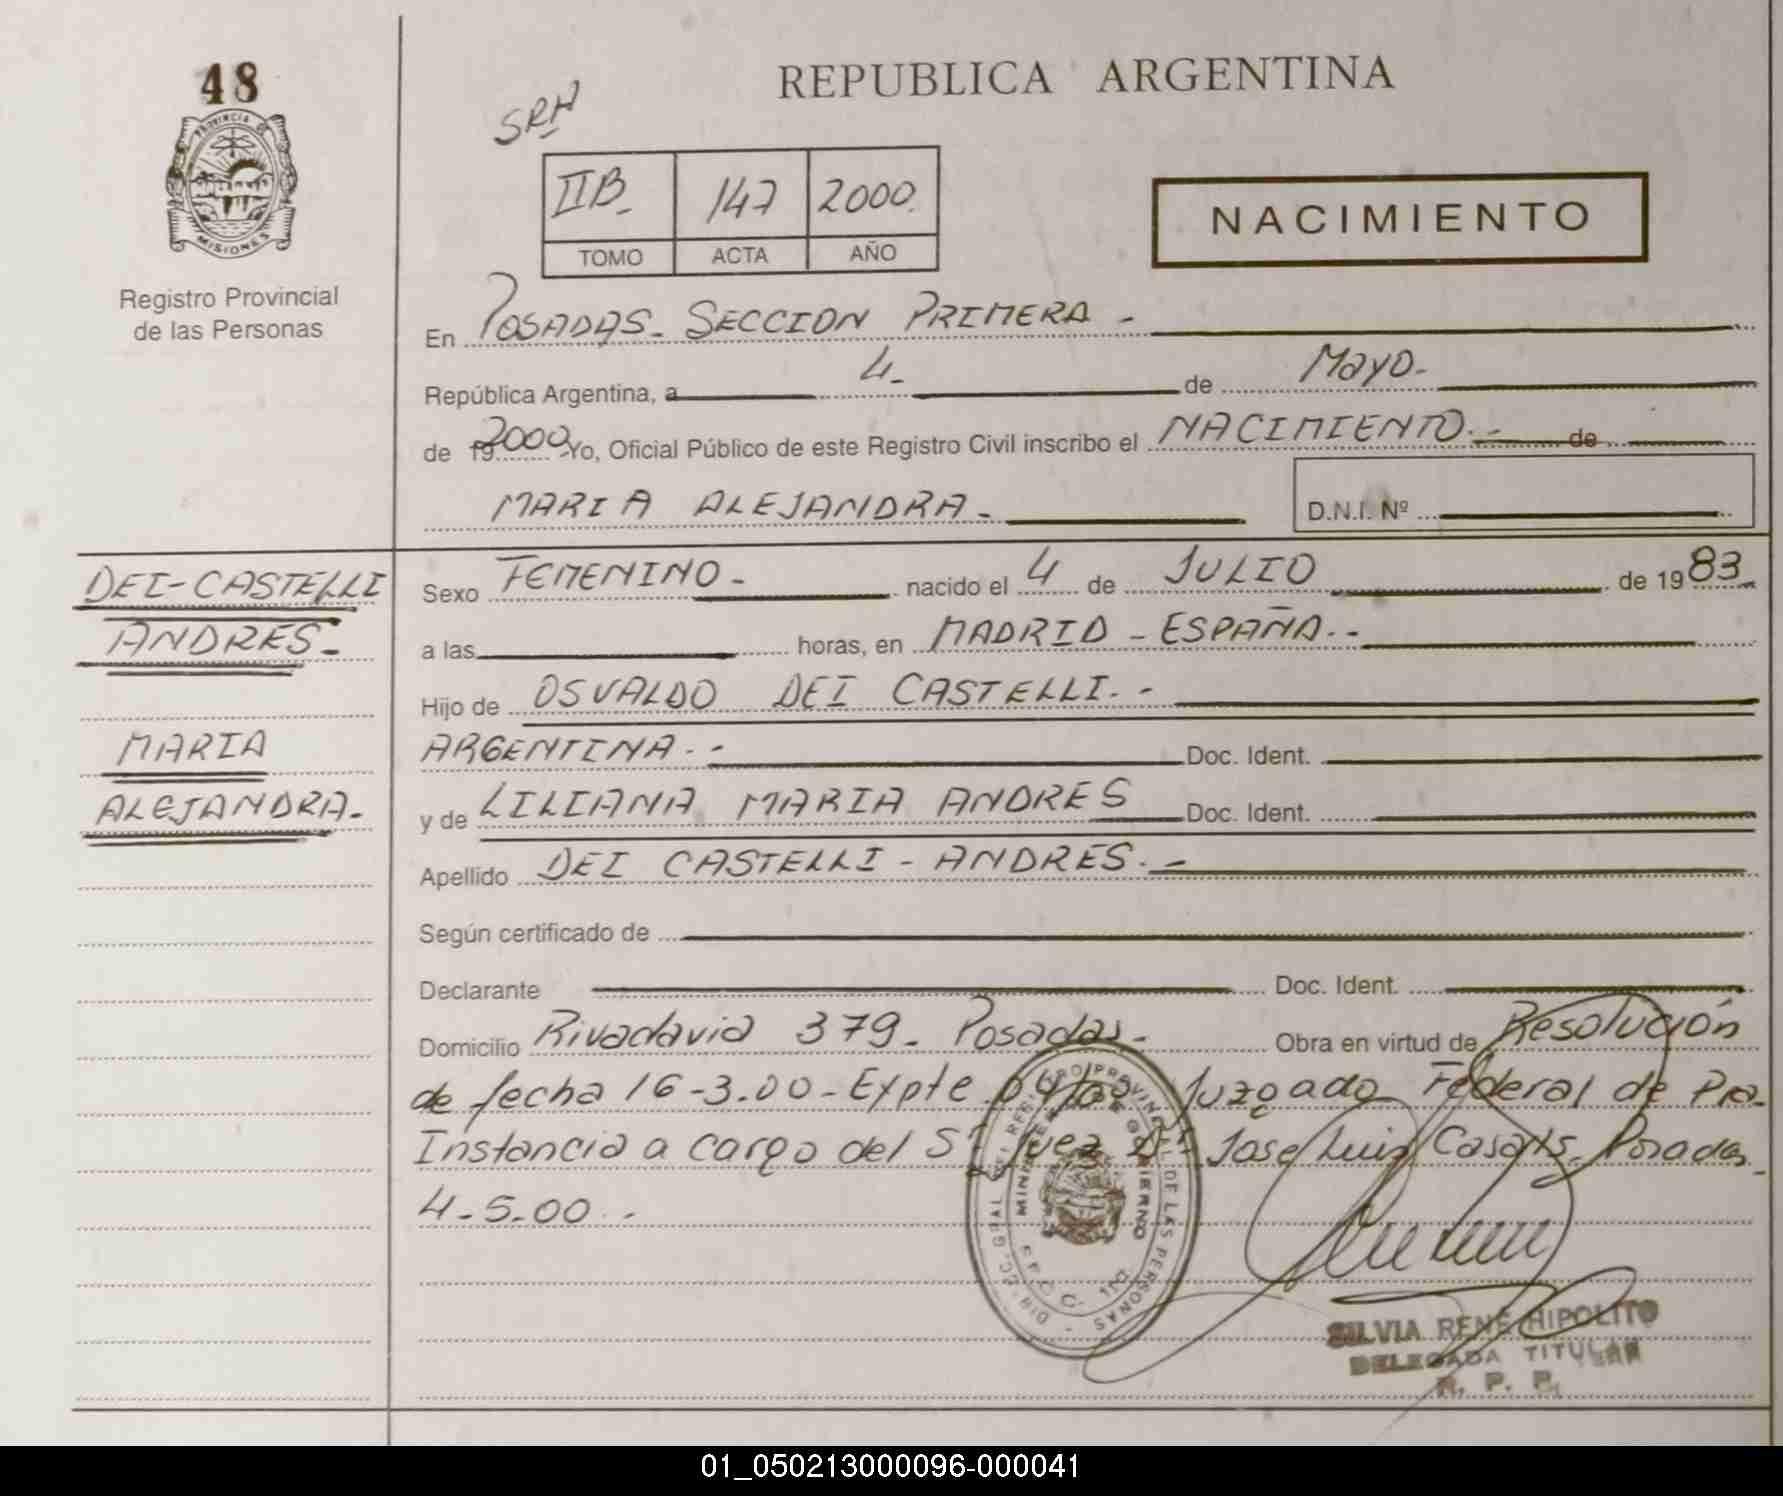 48
PROVINCIA DE
MISIONES
Registro Provincial
de las Personas
REPUBLICA ARGENTINA
SRH
IIB- 147 2000.
TOMO ACTA AÑO
NACIMIENTO
En POSADAS- SECCION PRIMERA -
República Argentina, a 4- de Mayo-
de 19 2000 Yo, Oficial Público de este Registro Civil inscribo el NACIMIENTO.- de
MARIA ALEJANDRA-
D.N.I. Nº
DEI-CASTELLI
ANDRES-
MARIA
ALEJANDRA-
Sexo FEMENINO- nacido el 4 de JULIO de 1983
a las horas, en MADRID - ESPAÑA.-
Hijo de OSVALDO DEI CASTELLI.-
ARGENTINA.- Doc. Ident.
y de LILIANA MARIA ANDRES Doc. Ident.
Apellido DEI CASTELLI - ANDRES.-
Según certificado de
Declarante Doc. Ident.
Domicilio Rivadavia 379- Posadas.- Obra en virtud de Resolución
de fecha 16-3.00- Expte Juzgado Federal de Pra.
Instancia a cargo del Sr Juez Dr Jose Luis Casals- Posadas-
4-5-00.-
DIREC. GRAL. DEL REGISTRO PROVINCIAL DE LAS PERSONAS -
MINISTERIO DE GOBIERNO
SILVIA RENÉ HIPOLITO
DELEGADA TITULAR
R. P. P.
01_050213000096-000041